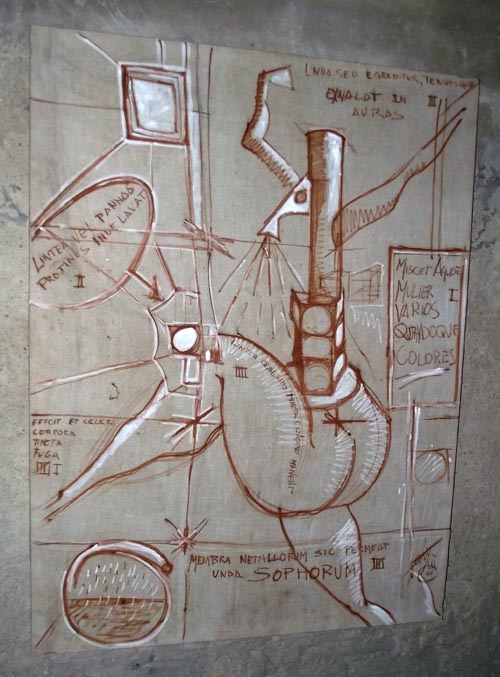 UNDA SED EGREDITUR, TENUESQUE
EXNALAT IN II
AURAS
LINTEA VEL PANNOS
PROTINUS INDE LAVAT
II
MISCET AQUAE
MULIER I
VARIOS
QUANDOQUE
COLORES
IIII
EFFICIT ET CELERI
CORPORA
TINCTA
FUGA
III I
MEMBRA METALLORUM SIC PERMEAT
UNDA SOPHORUM III